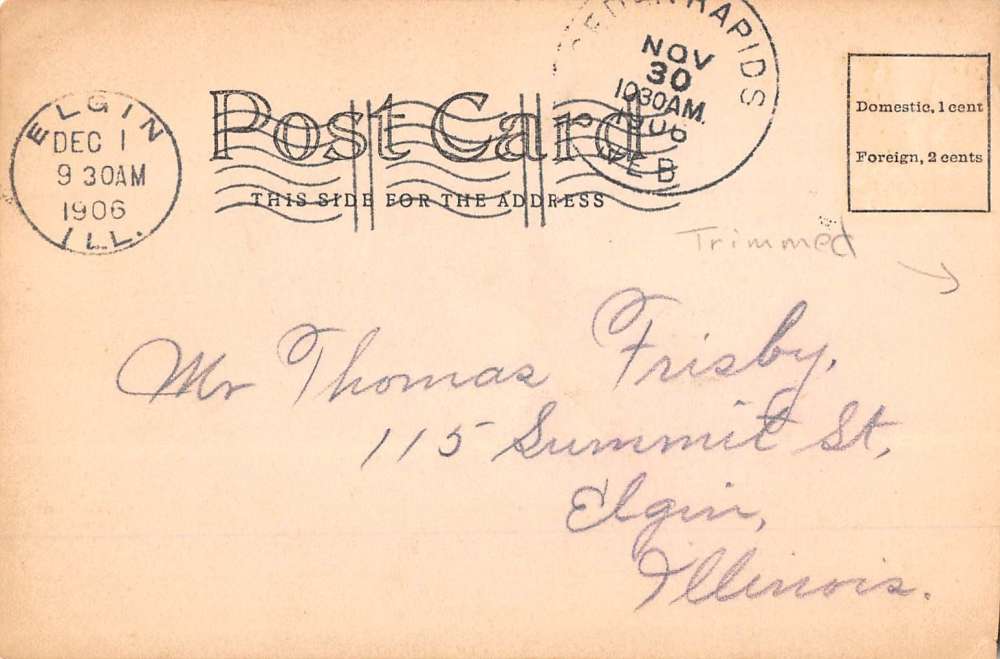 RAPIDS
NOV
30
1030AM.
1906
NEB
ELGIN
DEC 1
9 30AM
1906
ILL.
Post Card
THIS SIDE FOR THE ADDRESS
Domestic, 1 cent
Foreign, 2 cents
Trimmed
Mr Thomas Frisby,
115 Summit St,
Elgin,
Illinois.